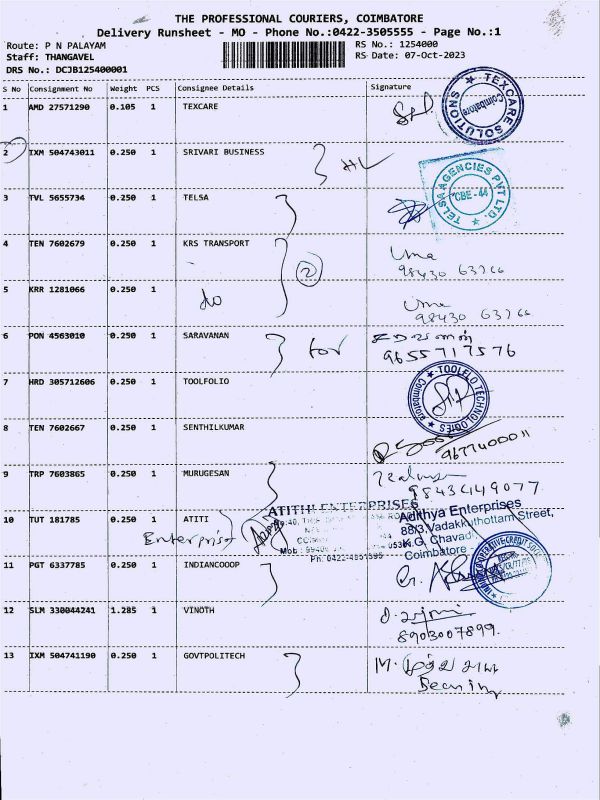 THE PROFESSIONAL COURIERS, COIMBATORE
Delivery Runsheet - MO - Phone No.:0422-3505555 - Page No.:1
Route: P N PALAYAM
RS No.: 1254000
Staff: THANGAVEL
RS Date: 07-Oct-2023
DRS No.: DCJB125400001
S No Consignment No Weight PCS Consignee Details Signature
1 AMD 27571290 0.105 1 TEXCARE
TEXCARE SOLUTIONS Coimbatore
2 IXM 504743011 0.250 1 SRIVARI BUSINESS
3 TVL 5655734 0.250 1 TELSA
TELSA AGENCIES PVT LTD. CBE-44
4 TEN 7602679 0.250 1 KRS TRANSPORT
2
Uma
98430 63266
5 KRR 1281066 0.250 1
do
Uma
98430 63266
6 PON 4563010 0.250 1 SARAVANAN
சரவணன்
9655717576
7 HRD 305712606 0.250 1 TOOLFOLIO
TOOLFLO TECHNOLOGIES Coimbatore
8 TEN 7602667 0.250 1 SENTHILKUMAR
9 TRP 7603865 0.250 1 MURUGESAN
9843449077
10 TUT 181785 0.250 1 ATITI
Enterprist
ATITHI ENTERPRISES
Ph: 0422-4851595
Adithya Enterprises
88/3, Vadakkuthottam Street,
K.G. Chavadi,
Coimbatore
11 PGT 6337785 0.250 1 INDIANCOOOP
12 SLM 330044241 1.285 1 VINOTH
8903007899.
13 IXM 504741190 0.250 1 GOVTPOLITECH